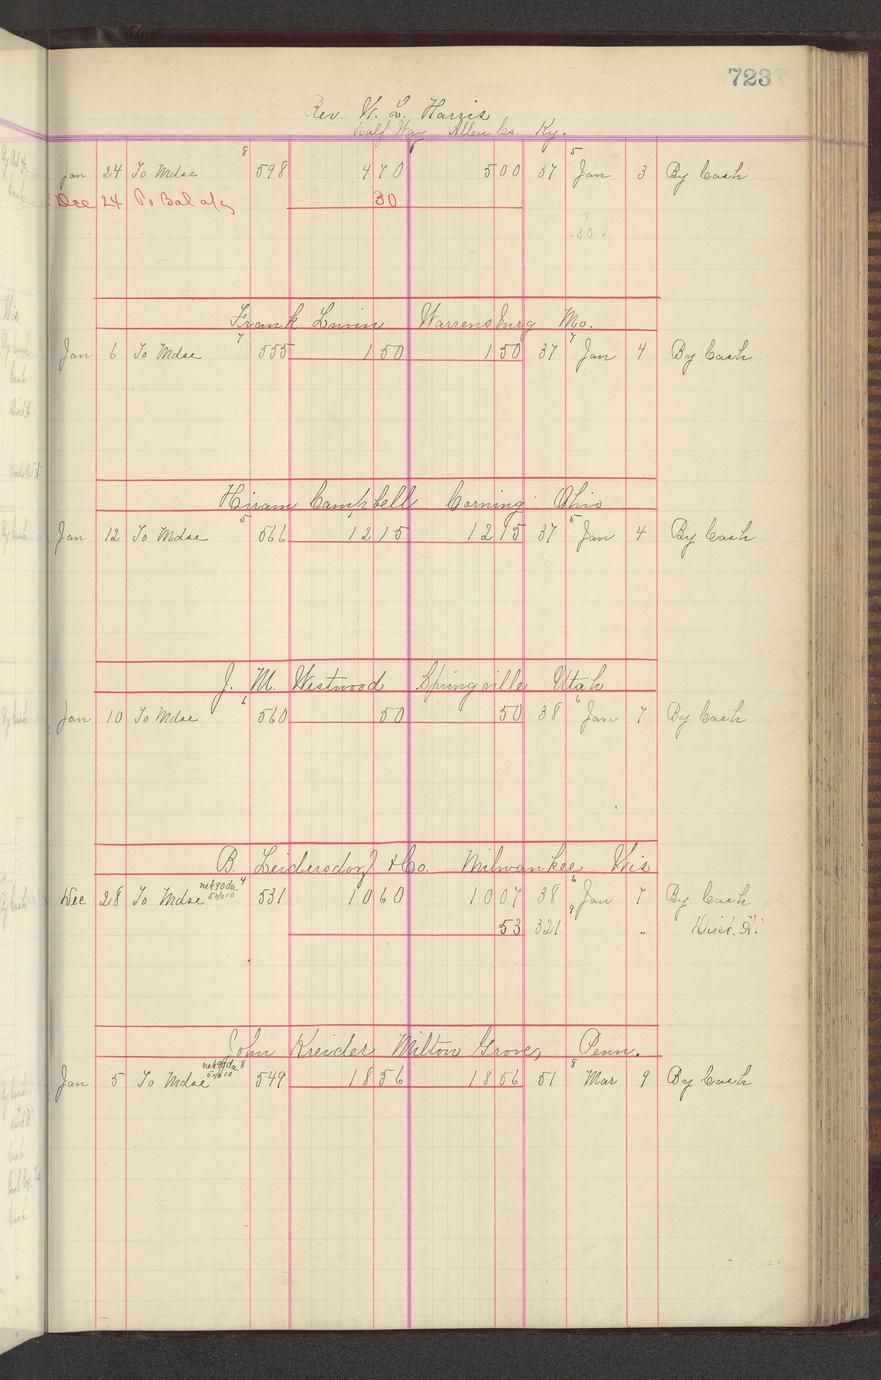 723
Rev. W. L. Harris
Half Way Allen Co. Ky.
Jan 24 To Mdse 8 598 470 500 37 5 Jan 3 By Cash
Dec 24 To Bal a/c 30
.30
Frank Warrensburg Mo.
Jan 6 To Mdse 7 555 150 150 37 7 Jan 4 By Cash
Hiram Campbell Corning Ohio
Jan 12 To Mdse 5 566 1215 1215 37 5 Jan 4 By Cash
J. M. Westwood Springville Utah
Jan 10 To Mdse 6 560 50 50 38 6 Jan 7 By Cash
B. Leidersdorf & Co. Milwaukee Wis
Dec 28 To Mdse net 90 da 5%10 4 531 1060 1007 38 6 Jan 7 By Cash
53 321 9 " Disct.
John Kreider Milton Grove, Penn.
Jan 5 To Mdse 8 549 1856 1856 51 8 Mar 9 By Cash